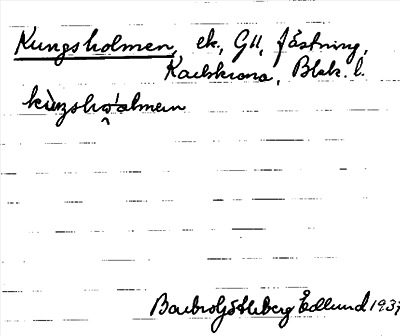 Kungsholmen, ek., GU, fästning,
Karlskrona, Blek. l.
kùngshǫ́lmen
Barbro Göthberg Edlund 1937